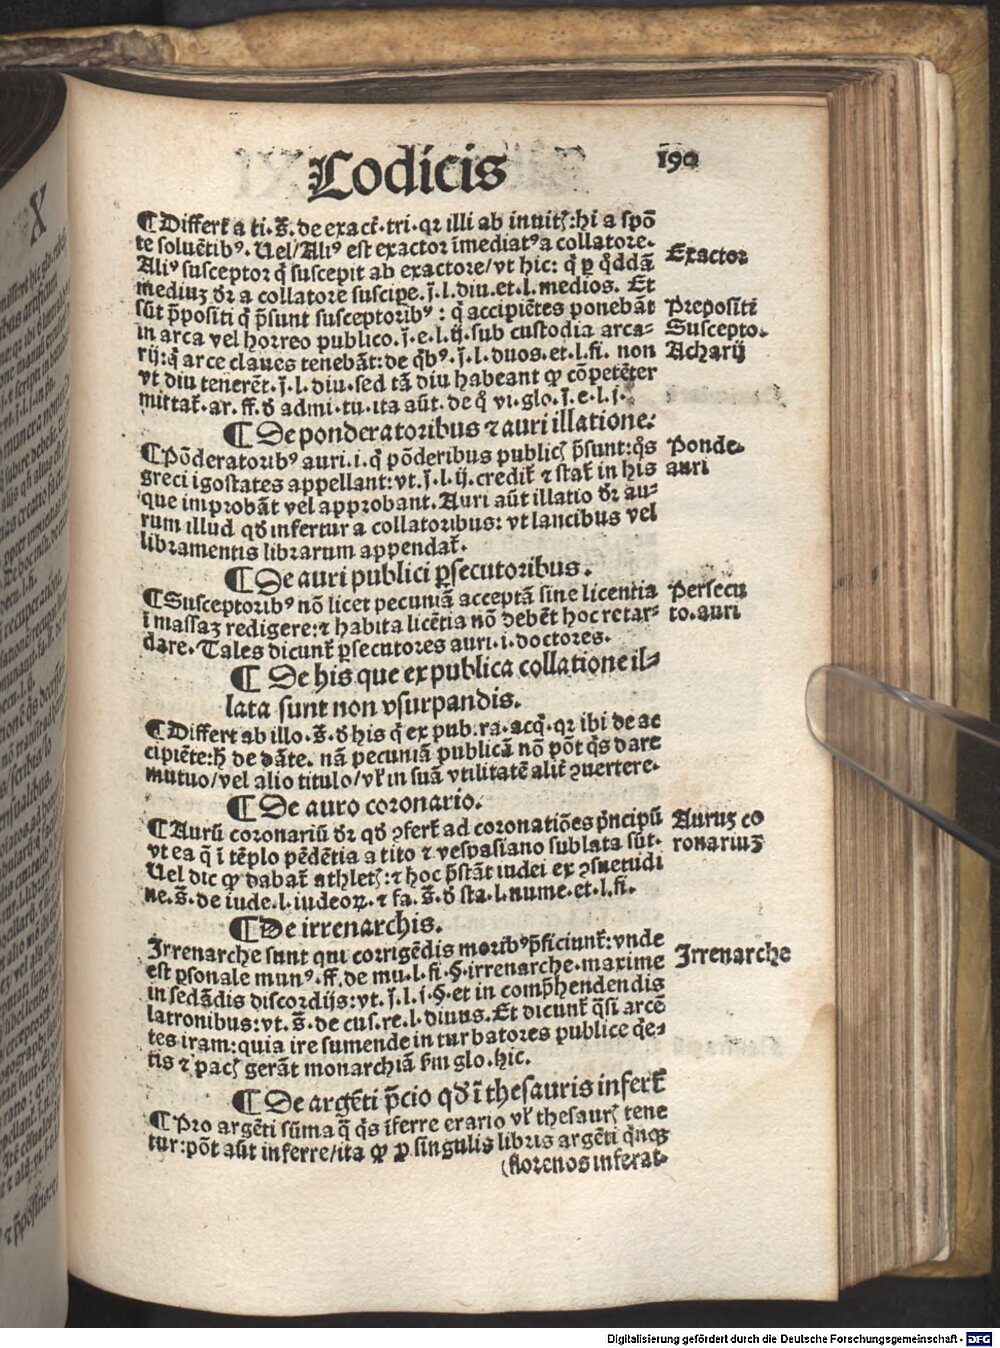 Codicis
190
¶ Differt̄ a ti. s̄. de exact̄. tri. qꝛ illi ab inuitꝭ: hi a spō
te soluētibꝰ. Uel/Aliꝰ est exactor īmediatꝰ a collatore.
Aliꝰ susceptor q̄ suscepit ab exactore/vt hic: q̄ ꝑ q̄ddā
mediuꝫ dr̄ a collatore suscipe. j̄. l. diu. et. l. medios. Et
sūt p̄positi q̄ p̄sunt susceptoribꝰ: q̄ accipiētes ponebāt
in arca vel horreo publico. j̄. e. l. ij. sub custodia arca⸗
rij: q̄ arce claues tenebāt: de q̄bꝰ. j̄. l. duos. et. l. fi. non
vt diu tenerēt. j̄. l. diu. sed tā diu habeant ꝙ cōpetēter
mittat̄. ar. ff. đ admi. tu. ita aūt. de q̄ vi. glo. j̄. e. l. j.
¶ De ponderatoribus ⁊ auri illatione.
¶ Pōderatoribꝰ auri. i. q̄ pōderibus publicꝭ p̄sunt: q̄s
greci igostates appellant: vt. j̄. l. ij. credit̄ ⁊ stat̄ in his
que improbāt vel approbant. Auri aūt illatio dr̄ au⸗
rum illud qđ infertur a collatoribus: vt lancibus vel
libramentis librarum appendat̄.
¶ De auri publici ꝑsecutoribus.
¶ Susceptoribꝰ nō licet pecuniā acceptā sine licentia
ī massaꝫ redigere: ⁊ habita licētia nō debēt hoc retar⸗
dare. Tales dicunt̄ ꝑsecutores auri. i. doctores.
¶ De his que ex publica collatione il⸗
lata sunt non vsurpandis.
¶ Differt ab illo. s̄. đ his q̄ ex pub. ra. acq̄. qꝛ ibi de ac
cipiēte: h̄ de dāte. nā pecuniā publicā nō pōt q̄s dare
mutuo/vel alio titulo/vl̄ in suā vtilitatē alit̄ ꝯuertere.
¶ De auro coronario.
¶ Aurū coronariū dr̄ qđ ꝯfert̄ ad coronatiōes p̄ncipū
vt ea q̄ ī tēplo pēdētia a tito ⁊ vespasiano sublata sūt.
Uel dic ꝙ dabat̄ athletꝭ: ⁊ hoc p̄stāt iudei ex ꝯsuetudi
ne. s̄. de iude. l. iudeoꝝ. ⁊ fa. s̄. đ sta. l. nume. et. l. fi.
¶ De irrenarchis.
Irrenarche sunt qui corrigēdis moribꝰ p̄ficiunt̄: vnde
est ꝑsonale munꝰ. ff. de mu. l. fi. §. irrenarche. maxime
in sedādis discordijs: vt. j̄. l. j. §. et in comp̄hendendis
latronibus: vt. s̄. de cus. re. l. diuus. Et dicunt̄ q̄si arcē
tes iram: quia ire sumende in turbatores publice q̄e⸗
tis ⁊ pacꝭ gerāt monarchiā fm glo. hic.
¶ De argēti p̄cio qđ ī thesauris infert̄
¶ Pro argēti sūma q̄ q̄s īferre erario vl̄ thesaurꝭ tene
tur: pōt aūt inferre/ita ꝙ ꝑ singulis libris argēti q̄nqꝫ
(florenos inferat.
Exactor
Prepositi
Suscepto.
Acharij
Ponde.
auri
Persecu
to. auri
Auruꝫ co
ronariuꝫ
Irrenarche
Digitalisierung gefördert durch die Deutsche Forschungsgemeinschaft - DFG